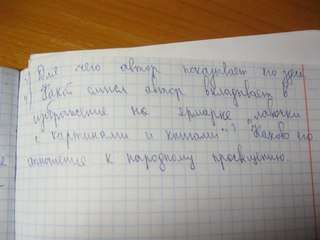 Для чего автор показывает его здесь
Какой смысл автор вкладывает в
изображение на ярмарке "лавочки
с картинами и книгами"? Каково его
отношение к народному просвещению.